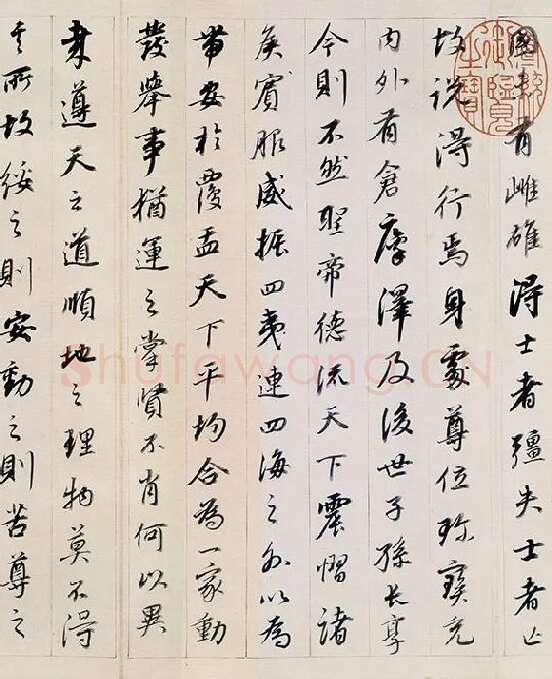 國有雌雄得士者彊失士者亡
故說得行焉身處尊位珍寶充
內外有倉廩澤及後世子孫長享
今則不然聖帝德流天下震慴諸
侯賓服威振四夷連四海之外以為
帶安於覆盂天下平均合為一家動
發舉事猶運之掌賢不肖何以異
遵天之道順地之理物莫不得
其所故綏之則安動之則苦尊之
御覽之寶
Shufawang.CN